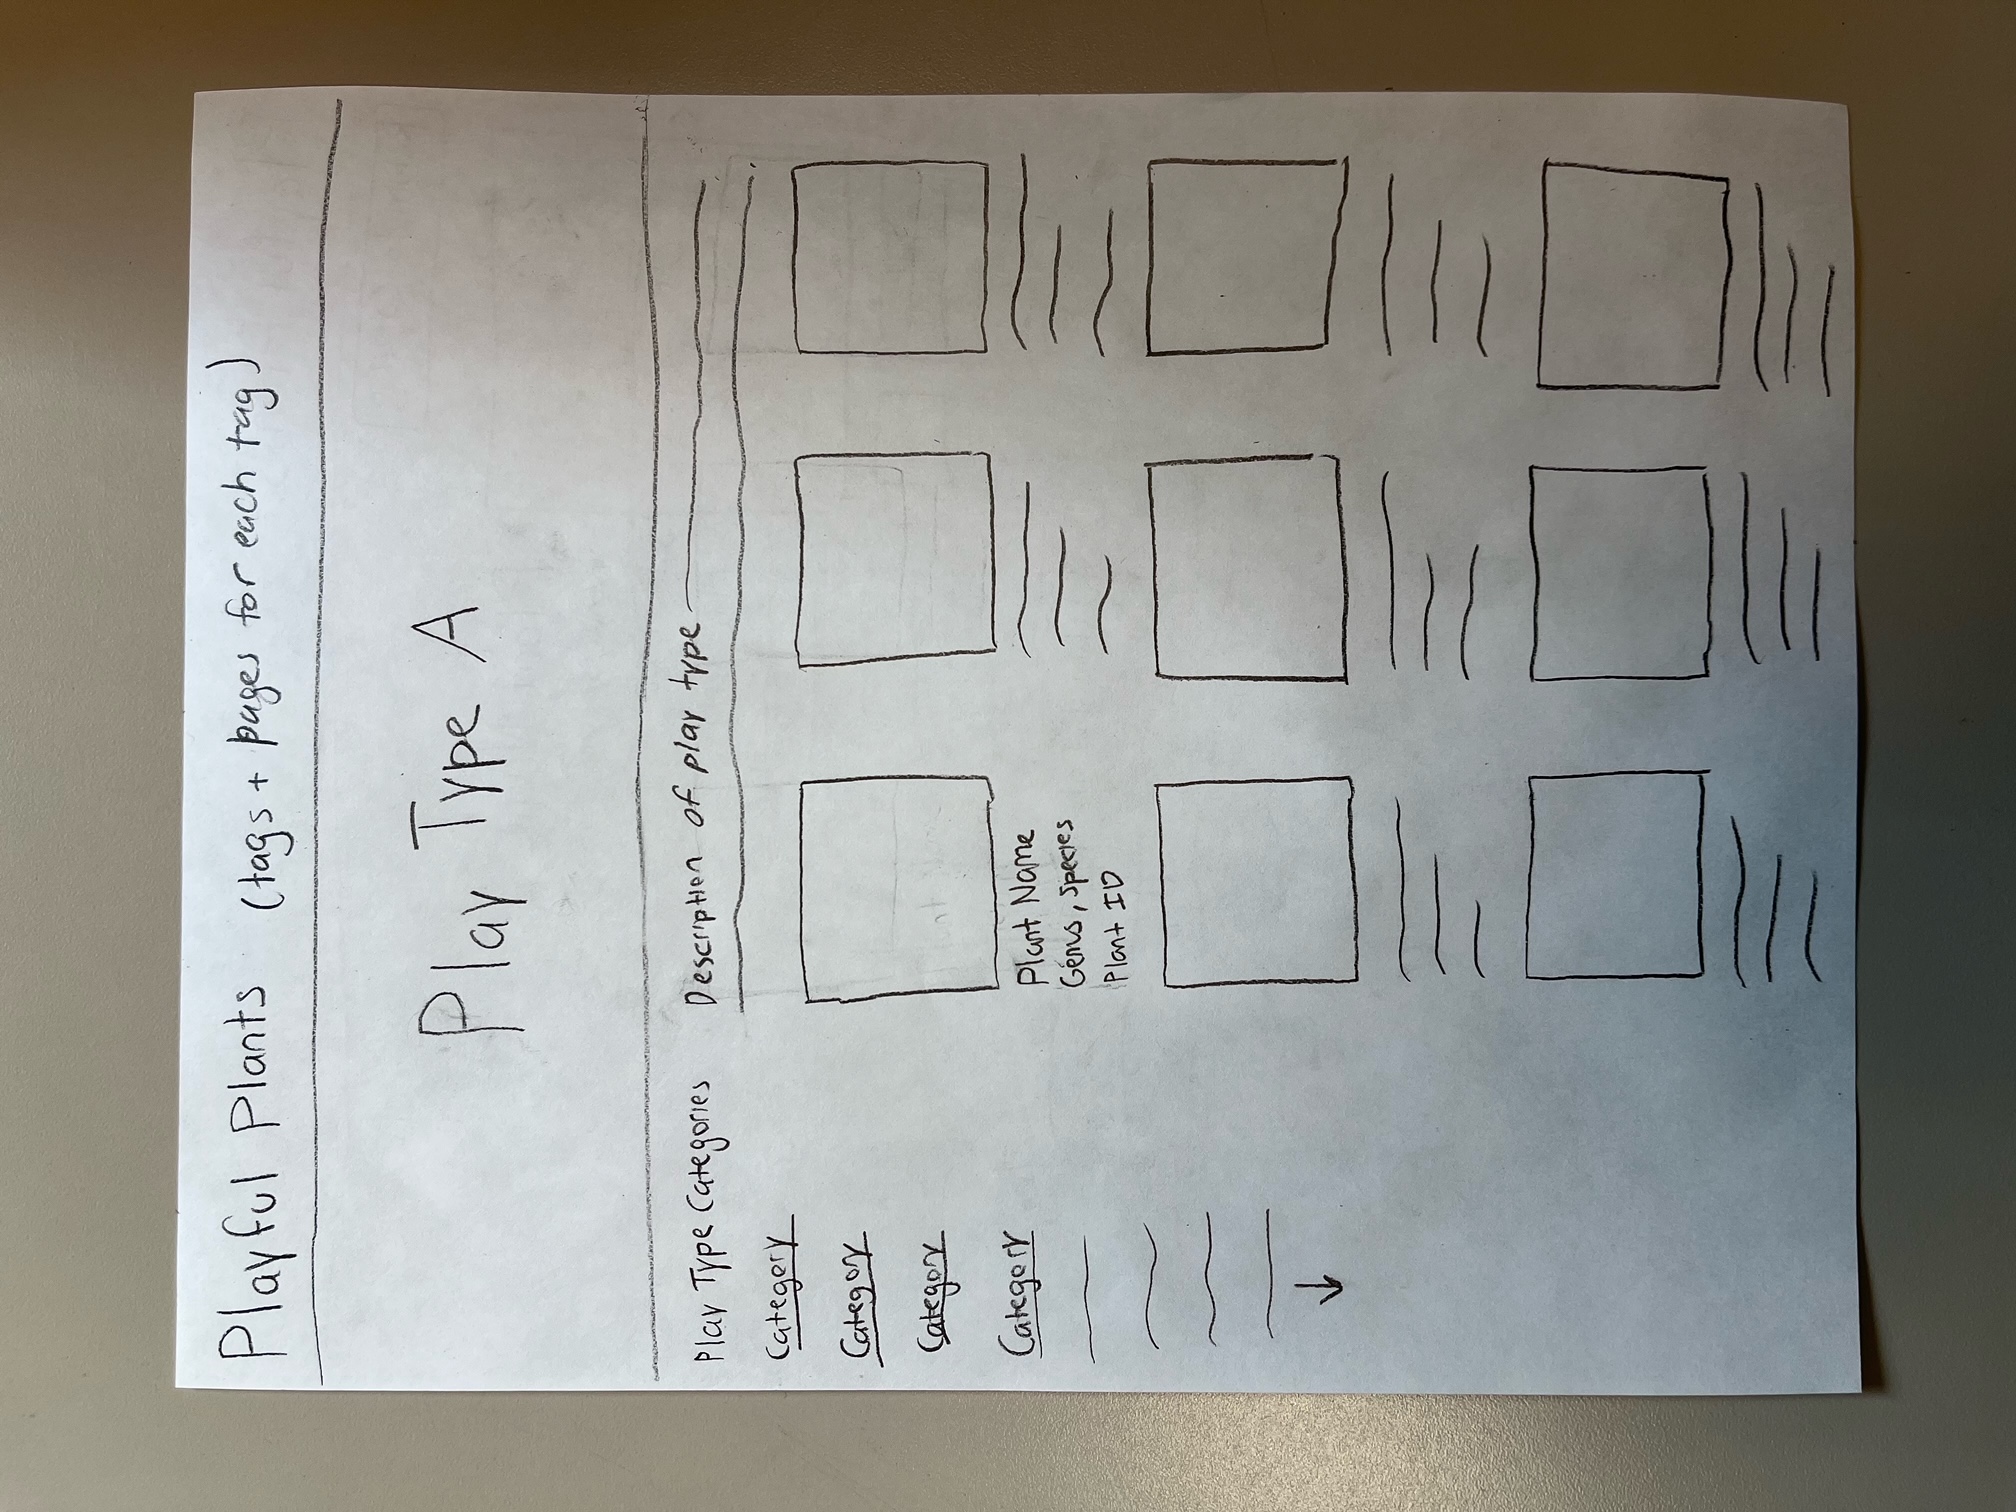 Playful Plants (tags + pages for each tag)
Play Type A
Play Type Categories
Category
Category
Category
Category
Description of play type
Plant Name
Genus, Species
Plant ID